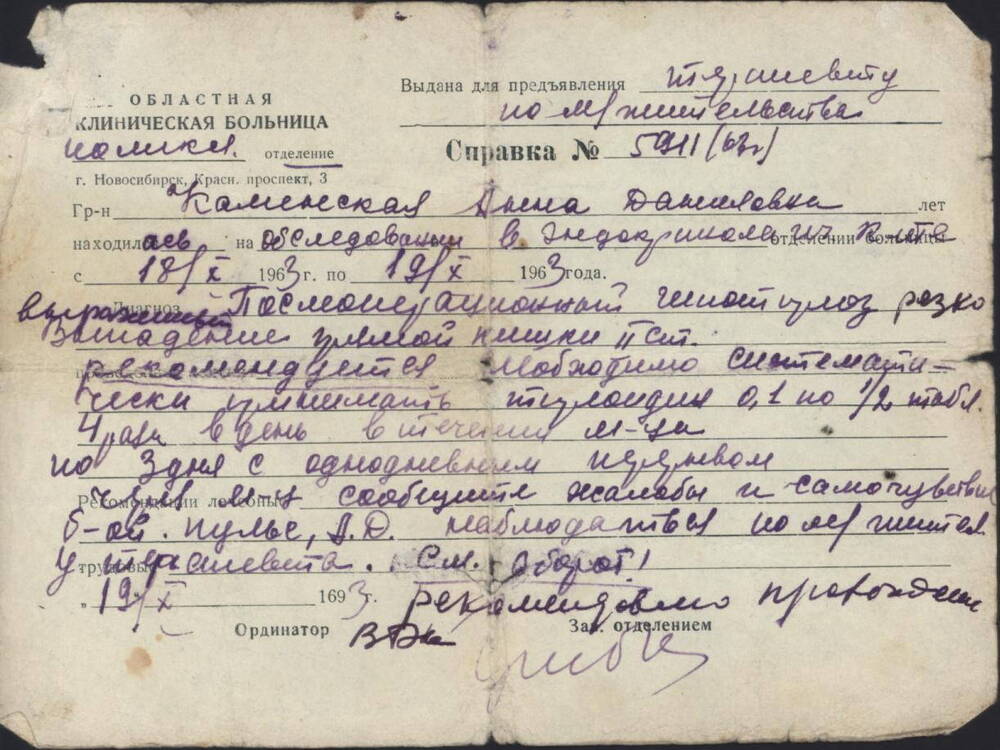 ОБЛАСТНАЯ
КЛИНИЧЕСКАЯ БОЛЬНИЦА
полики. отделение
г. Новосибирск, Красн. проспект, 3
Выдана для предъявления терапевту
по м/жительства
Справка № 5911 (63г)
Гр-н Каминская Анна Даниловна лет
находилась на обследовании в эндокринолог. отделении больницы
с 18/X 1963 г. по 19/X 1963 года.
Диагноз Послеоперационный гипотиреоз резко
выраженный
Выпадение прямой кишки II ст.
рекомендуется необходимо системати-
чески принимать тиреоидин 0,1 по 1/2 табл.
4 раза в день в течении м-ца
по 3 дня с однодневным перерывом
Рекомендации лечебные через м-ц сообщите жалобы и самочувствие
б-ой. пульс, А.Д. наблюдаться по м/жител
трудовые у терапевта. См. оборот!
„ 19/X 1693 г. рекомендовано
Ординатор
Зав. отделением